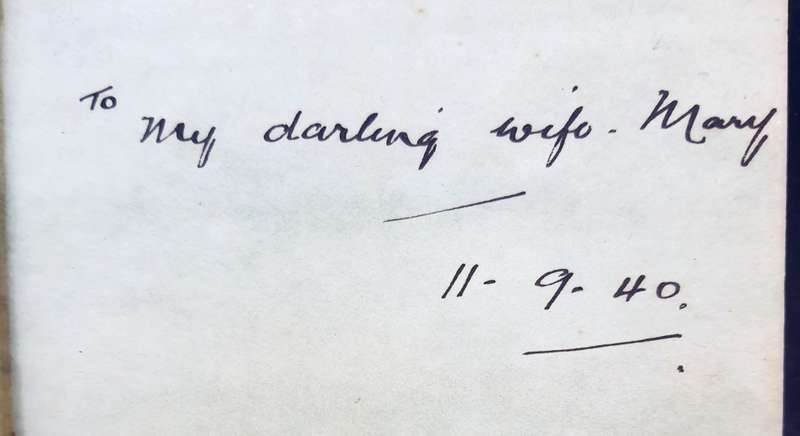 To My darling wife. Mary
11- 9- 40.